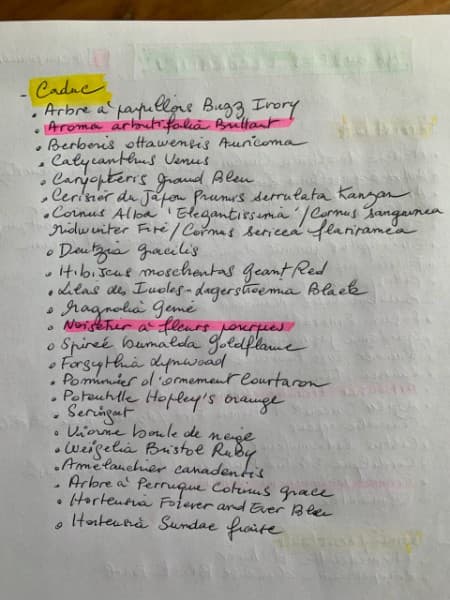 - Caduc
• Arbre à papillons Buzz Ivory
• Aroma arbutifolia Brillant
• Berberis ottawensis Auricoma
• Calycanthus Venus
• Caryopteris Grand Bleu
• Cerisier du Japon Prunus serrulata Kanzan
• Cornus Alba 'Elegantissima'/Cornus sanguinea
Midwinter Fire/Cornus sericea flaviramea
• Deutzia gracilis
• Hibiscus moscheutos Geant Red
• Lilas des Indes - Lagerstroemia Black
• Magnolia Genie
• Noisetier à fleurs pourpres
• Spirée bumalda Goldflame
• Forsythia Lynwood
• Pommier d'ornement Courtaron
• Potentille Hopley's orange
• Seringat
• Viorne boule de neige
• Weigelia Bristol Ruby
• Amelanchier canadensis
• Arbre à Perruque Cotinus grace
• Hortensia Forever and Ever Bleu
• Hortensia Sundae fraise